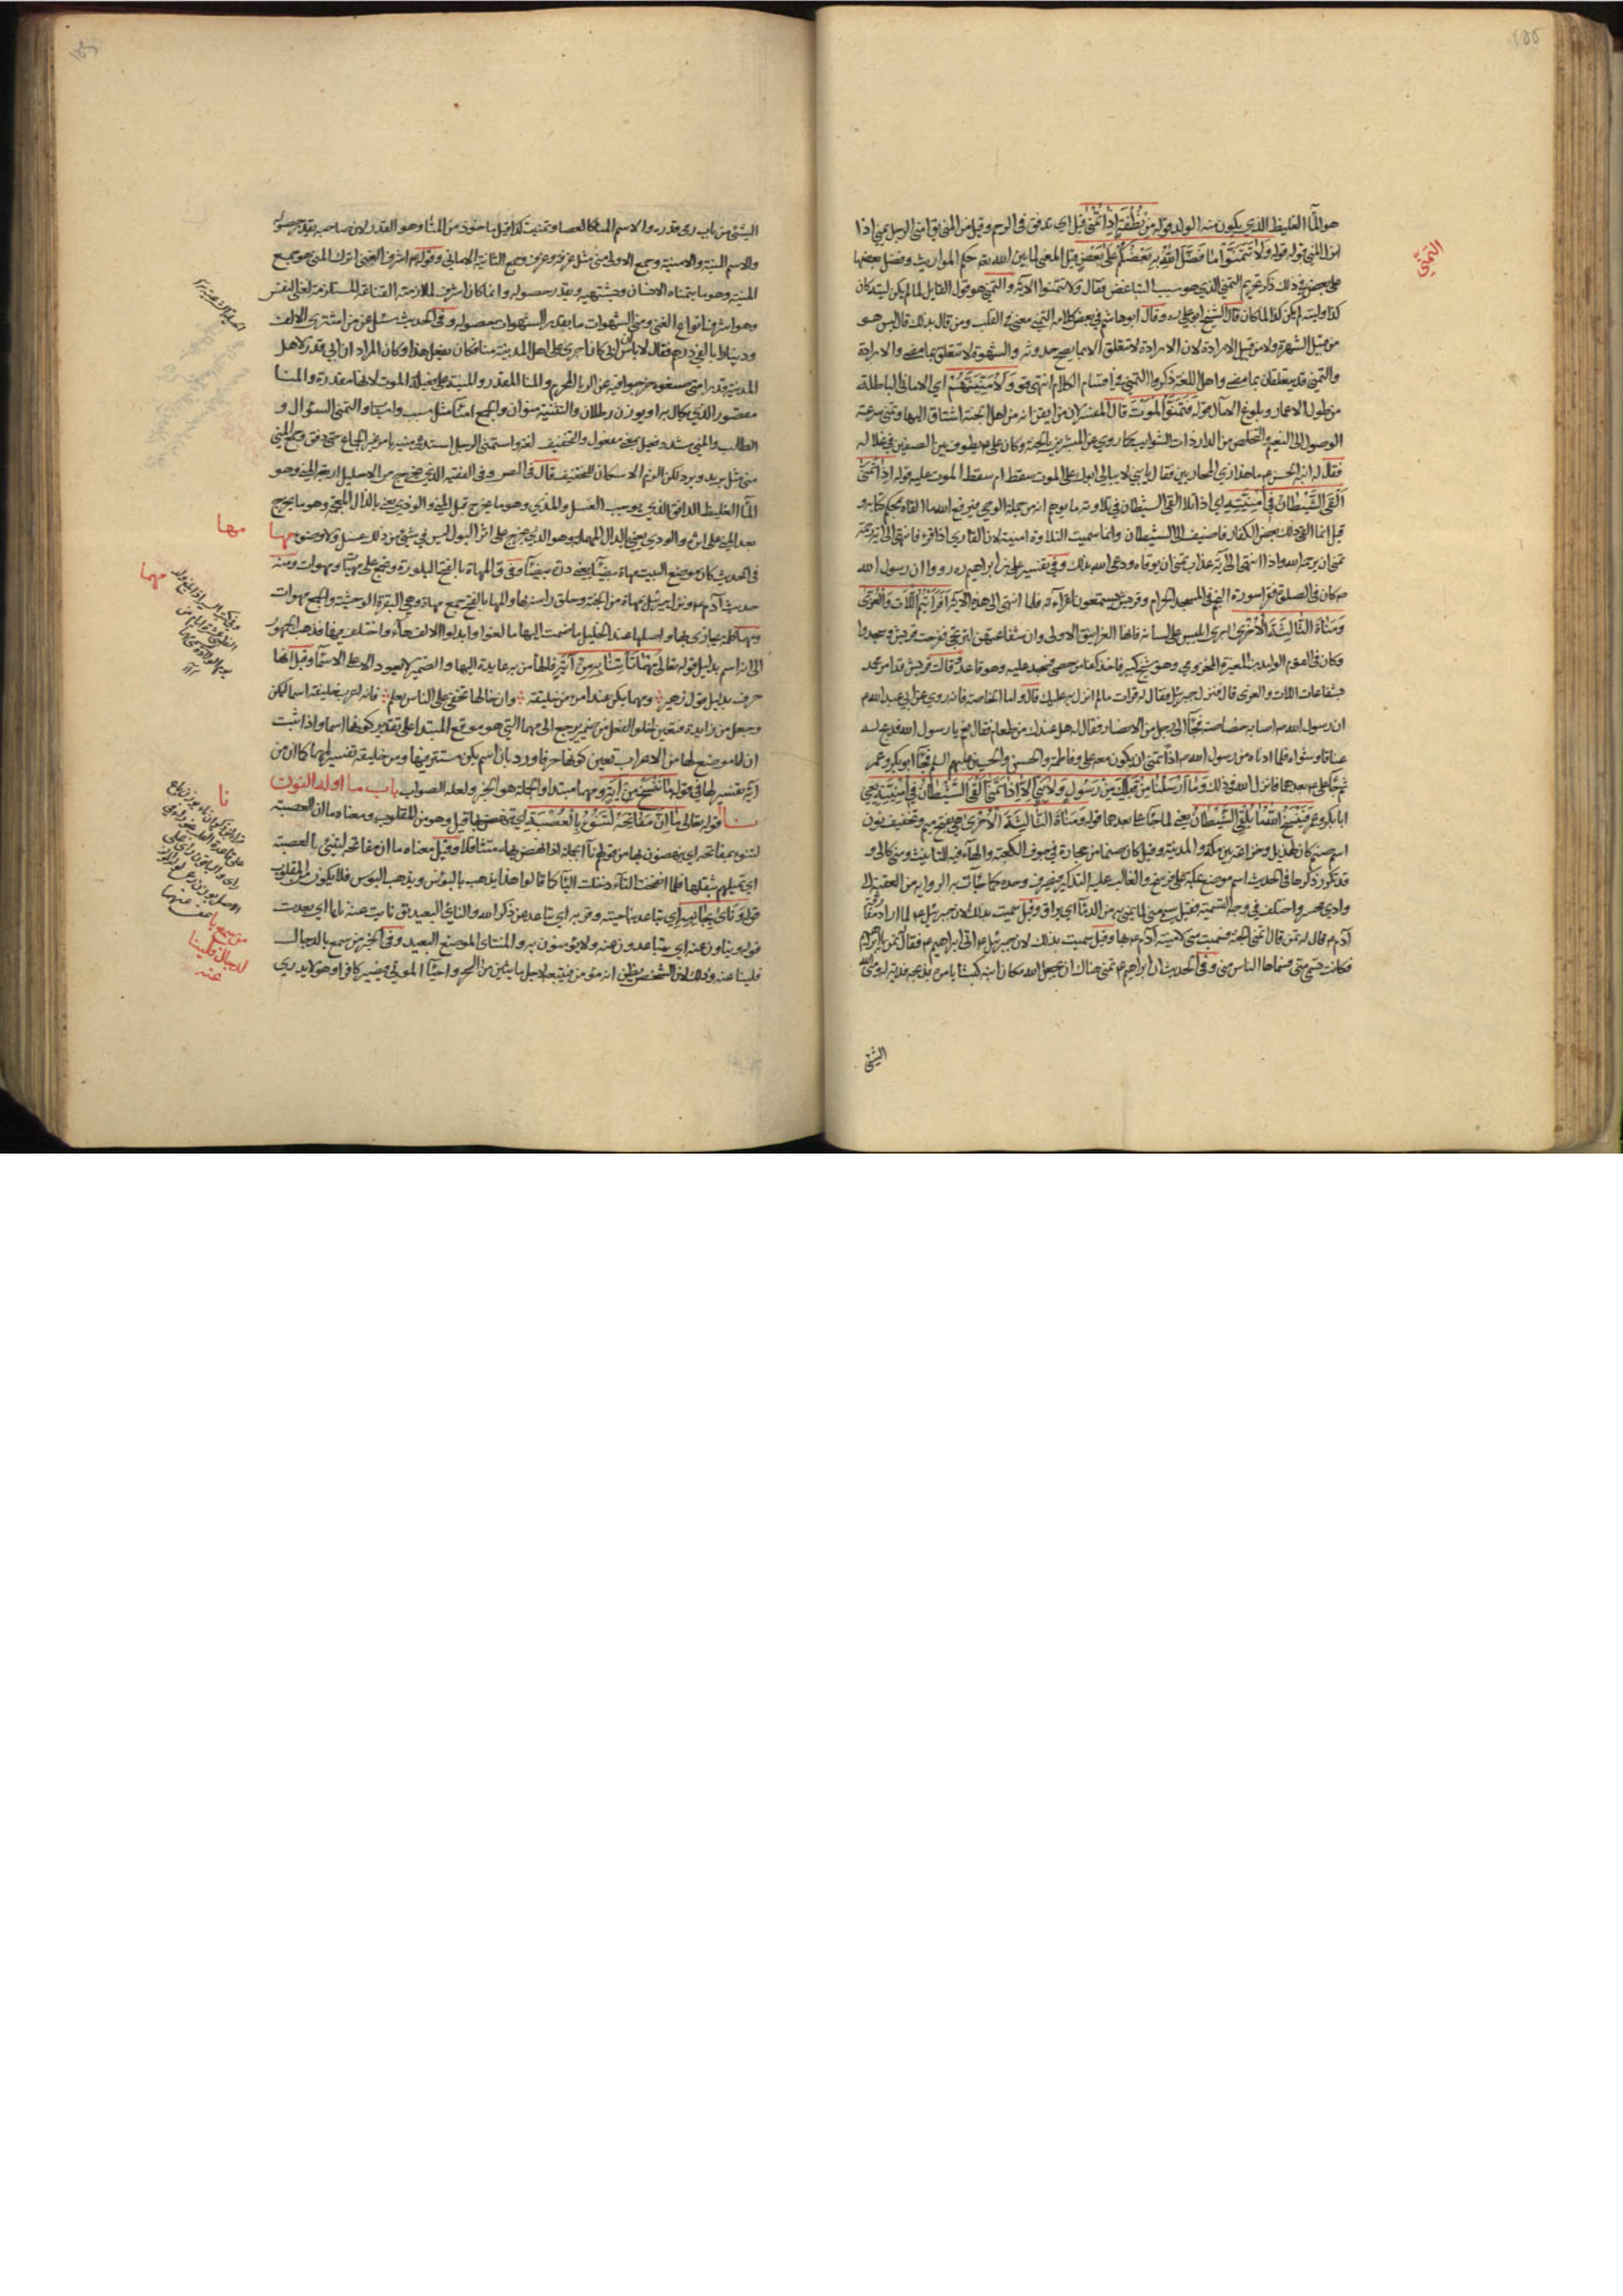 هو الماء الغليظ الذي يكون منه الولد وقوله من نطفة اذا تمنى قيل اي تدفق في الرحم وقيل من المني يق امنى الرجل يمني اذا
انزل المني قوله ولا تتمنوا ما فضل الله به بعضكم على بعض قيل المعنى لما بين الله تع حكم المواريث وفضل بعضها
على بعض في ذلك ذكر تحريم التمني الذي هو سبب التباغض فقال ولا تتمنوا الآية والتمني هو قول القايل لما لم يكن ليته كان
كذا وليته لم يكن كذا لما كان قال الشيخ ابو علي ره وقال ابو هاشم في بعض كلامه التمني معنى في القلب ومن قال بذلك قال ليس هو
من قبيل الشهوة ولا من قبيل الارادة لان الارادة لا تتعلق الا بما يصح حدوثه والشهوة لا تتعلق بما مضى والارادة
والتمني قد يتعلقان بما مضى واهل اللغة ذكروا التمني في اقسام الكلام انتهى قوله ولامنينهم اي الاماني الباطلة
من طول الاعمار وبلوغ الآمال قوله فتمنوا الموت قال المفسر لان من ايقن انه من اهل الجنة اشتاق اليها وتمنى سرعة
الوصول الى النعيم والتخلص من الدار ذات الشوايب كما روي عن المبشرين بالجنة وكان علي ع يطوف بين الصفين في غلالة
فقال له ابنه الحسن ع ما هذا زي المحاربين فقال يا بني لا يبالي ابوك على الموت سقط ام سقط الموت عليه قوله اذا تمنى
القى الشيطان في امنيته اي اذا تلا القى الشيطان في تلاوته ما يوهم انه من جملة الوحي فيرفع الله ما القاه بمحكم كتابه و
قيل انما القى ذلك بعض الكفار فاضيف الى الشيطان وانما سميت التلاوة امنية لان القاري اذا قرء فانتهى الى آية رحمة
تمنى ان يرحمه الله واذا انتهى الى آية عذاب تمنى ان يوقاه ودعى الله بذلك وفي تفسير علي بن ابراهيم ره رووا ان رسول الله
ص كان في الصلوة فقرا سورة النجم في المسجد الحرام وقريش يستمعون لقراءته فلما انتهى الى هذه الآية افرايتم اللات والعزى
ومناة الثالثة الاخرى اجرى ابليس على لسانه فانها الغرانيق الاولى وان شفاعتهن لترتجى ففرحت قريش وسجدوا
وكان في القوم الوليد بن المغيرة المخزومي وهو شيخ كبير فاخذ كفا من حصى فسجد عليه وهو قاعد وقالت قريش قد اقر محمد
بشفاعات اللات والعزى قال فنزل جبرئيل فقال له قرات ما لم انزل به عليك قال واما الخاصة فانه روي عن ابي عبد الله ع
ان رسول الله ص اصابه خصاصة فجاء الى رجل من الانصار فقال له هل عندك من طعام فقال نعم يا رسول الله فذبح له
عناقا وشواه فلما ادناه من رسول الله ص اذا تمنى ان يكون معه علي وفاطمة والحسن والحسين عليهم السلم فجاء ابو بكر وعمر
ثم جاء علي ع بعدهما فانزل الله في ذلك وما ارسلنا من قبلك من رسول ولا نبي الا اذا تمنى القى الشيطان في امنيته يعني
ابا بكر وعمر فينسخ الله ما يلقي الشيطان يعني لما جاء علي ع بعدهما قوله ومناة الثالثة الاخرى هي بفتح ميم وتخفيف نون
اسم صنم كان لهذيل وخزاعة بين مكة والمدينة وقيل كان صنما من حجارة في جوف الكعبة والهاء فيه للتانيث ومنى كالى و
قد تكرر ذكرها في الحديث اسم موضع بمكة على فرسخ والغالب عليه التذكير فيصرف وحده كما جاءت به الرواية من العقبة الى
وادي محسر واختلف في وجه التسمية فقيل سمي منى لما يمنى به من الدماء اي يراق وقيل سميت بذلك لان جبرئيل ع لما اراد مفارقة
آدم ع قال له تمن قال اتمنى الجنة فسميت منى لامنية آدم ع بها وقيل سميت بذلك لان جبرئيل ع اتى ابراهيم ع فقال تمن يا ابراهيم
فكانت تسمى منى فسماها الناس منى وفي الحديث ان ابراهيم ع تمنى هناك ان يجعل الله مكان ابنه كبشا يامره بذبحه فدية له ومنى الله
الشيء
التمني
الشيء من باب رمى قدره والاسم المنا كالعصا وتمنيت كذا قيل ماخوذ من المنا وهو القدر لان صاحبه يقدر حصوله
والاسم المنية والامنية وجمع الاولى منى مثل غرفة وغرف وجمع الثانية الاماني وقوله ع اشرف الغنى ترك المنى هو جمع
المنية وهو ما يتمناه الانسان ويشتهيه ويقدر حصوله وانما كان اشرف لملازمته القناعة المستلزمة لغنى النفس
وهو اشرف انواع الغنى ومنى الشهوات ما يقدر الشهوات بحصوله وفي الحديث سئل عن من اشترى الالف
ودينارا بالفي درهم فقال لا باس ان ابي كان اجرى على اهل المدينة منا فكان يفعل هذا وكان المراد ان ابي قدر لاهل
المدينة قدرا متى صنعوه خرجوا فيه عن الربا المحرم والمنا المقدر والمنية على فعيلة الموت لانها مقدرة والمنا
مقصور الذي يكال به او يوزن رطلان والتثنية منوان والجمع امناء مثل سبب واسباب والتمني السؤال و
الطلب والمني مشدد فعيل بمعنى مفعول والتخفيف لغة واستمنى الرجل استدعى منيه بامر غير الجماع حتى دفق وجمع المني
منى مثل بريد وبرد لكن الزم الاسكان للتخفيف قال في المص وفي الفقيه الذي يخرج من الاحليل اربعة المني وهو
الماء الغليظ الدافق الذي يوجب الغسل والمذي وهو ما يخرج قبل المني والوذي يعني بالذال المعجمة وهو ما يخرج
بعد المني على اثره والودي يعني بالدال المهملة وهو الذي يخرج على اثر البول ليس في شيء من ذلك غسل ولا وضوء مها
في الحديث كان موضع البيت مهاة بيضاء يعني درة بيضاء وفي ق المهاة بالفتح البلورة وتجمع على مهيات ومهوات ومنه
حديث آدم ع ونزل جبرئيل بمهاة من الجنة وحلق راسه بها والمها بالفتح جمع مهاة وهي البقرة الوحشية والجمع مهوات
ومهما كلمة يجازى بها واصلها عند الخليل ما ضمت اليها ما لغوا وابدلوا الالف هاء واختلف فيها فذهب الجمهور
الى انه اسم بدليل قوله تعالى مهما تاتنا به من آية فالهاء من به عايدة اليها والضمير لا يعود الا على الاسماء وقيل انها
حرف بدليل قول زهير ومهما يكن عند امرء من خليقة وان خالها تخفى على الناس تعلم فانه اعرب خليقة اسما ليكن
وجعل من زايدة فتعين خلو الفعل من ضمير يرجع الى مهما التي هو موقع المبتدا على تقدير كونها اسما واذا ثبت
ان لا موضع لها من الاعراب تعين كونها حرفا ورد بان اسم يكن مستتر فيها ومن خليقة تفسير لمهما كما ان من
آية تفسير لها في قوله ما ننسخ من آية ومهما مبتدا والجملة هو الخبر ولعله الصواب باب ما اوله النون
نـا قوله تعالى ما ان مفاتحه لتنوء بالعصبة اي تنهض بها قيل وهو من المقلوب ومعناه ما ان العصبة
لتنوء بمفاتحه اي ينهضون بها من قولهم ناء بحمله اذا نهض به متثاقلا وقيل معناه ما ان مفاتحه لتنيء بالعصبة
اي تميلهم بثقلها فلما انفتحت التاء دخلت الباء كما قالوا هذا يذهب بالبؤس ويذهب البوس فلا يكون من المقلوب
قوله وناى بجانبه اي تباعد بناحيته وقربه اي تباعد عن ذكر الله والناي البعد يق نايت عنه نايا اي بعدت
قوله ويناون عنه اي يتباعدون عنه ولا يؤمنون به والمنتاى الموضع البعيد وفي الخبر من سمع بالدجال
فلينا عنه وذلك لان الشخص يظن انه مؤمن فيتبعه لاجل ما يثيره من السحر واحياء الموتى فيصير كافرا وهو لا يدري
مها
مهما
نا
من سمع
بالدجال فلينا
عنه